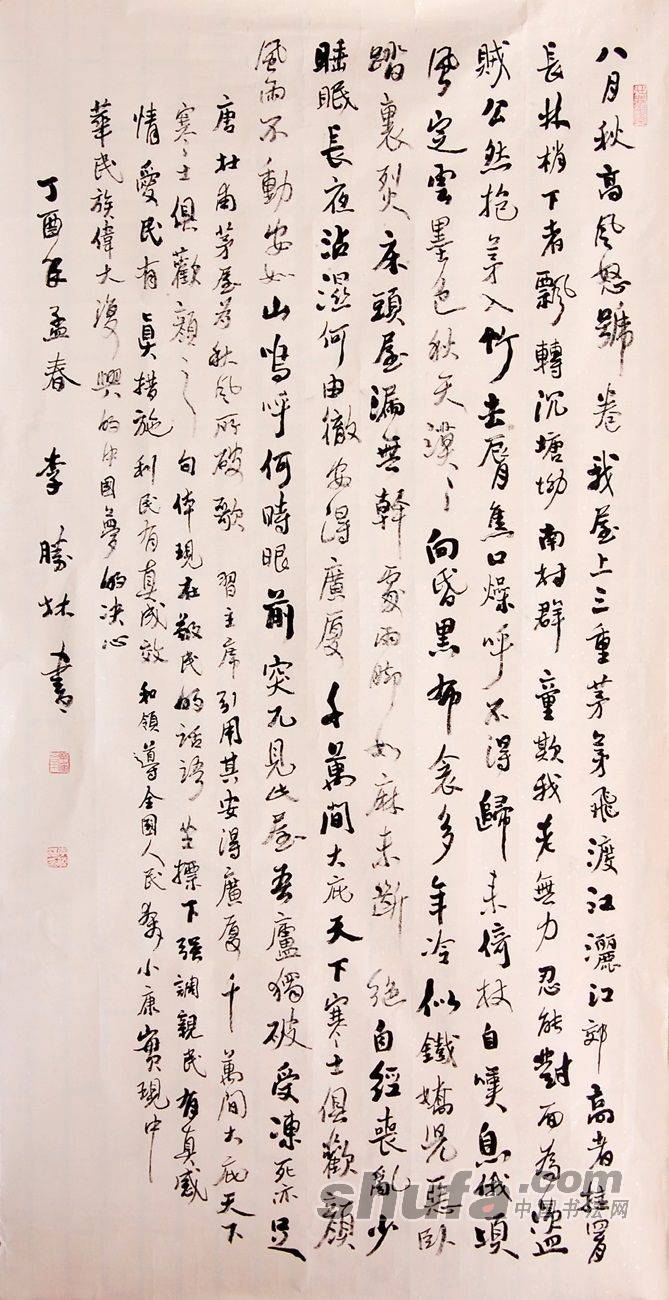 八月秋高風怒號卷我屋上三重茅茅飛渡江灑江郊高者挂罥
長林梢下者飄轉沉塘坳南村群童欺我老無力忍能對面為盜
賊公然抱茅入竹去唇焦口燥呼不得歸來倚杖自嘆息俄頃
風定雲墨色秋天漠々向昏黑布衾多年冷似鐵嬌兒惡臥
踏裏裂床頭屋漏無幹處雨腳如麻未斷絕自經喪亂少
睡眠長夜沾濕何由徹安得廣廈千萬間大庇天下寒士俱歡顏
風雨不動安如山嗚呼何時眼前突兀見此屋吾廬獨破受凍死亦足
唐杜甫茅屋為秋風所破歌 習主席引用其安得廣廈千萬間大庇天下
寒士俱歡顏之句体現在敬民的話語坐標下强調親民有真感
情愛民有真措施利民有真成效和領導全國人民奔小康實現中
華民族偉大復興的中國夢的决心
丁酉年孟春 李勝林書
shufa.com
中国书法网